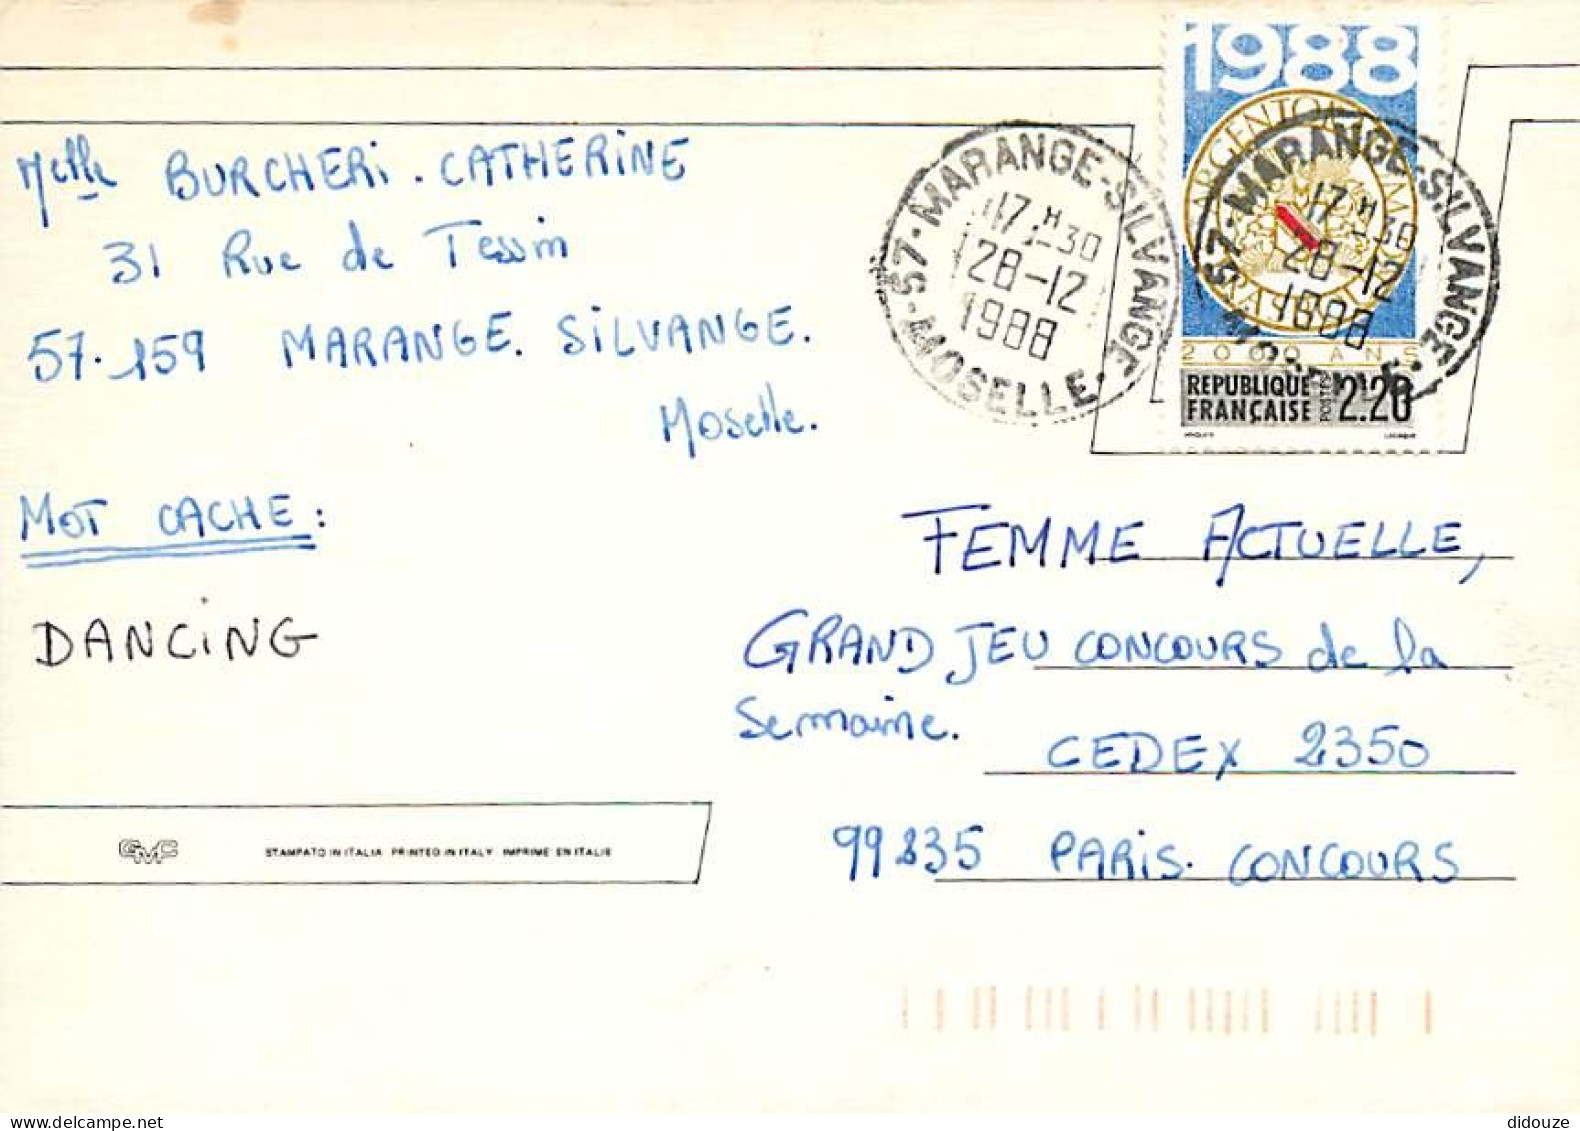 1988
ARGENTORATUM
2000 ANS
REPUBLIQUE
FRANÇAISE
POSTES
2,20
57-MARANGE-SILVANGE-MOSELLE
17H30
28-12
1988
57-MARANGE-SILVANGE-MOSELLE
17H30
28-12
1988
Melle BURCHERi. CATHERiNE
31 Rue de Tessin
57.159 MARANGE. SiLVANGE.
Moselle.
MOT CACHE :
DANCiNG
FEMME ACTUELLE,
GRAND JEU CONCOURS de la
Semaine.
CEDEX 2350
99835 PARiS. CONCOURS
GMC
STAMPATO IN ITALIA · PRINTED IN ITALY · IMPRIME EN ITALIE
didouze